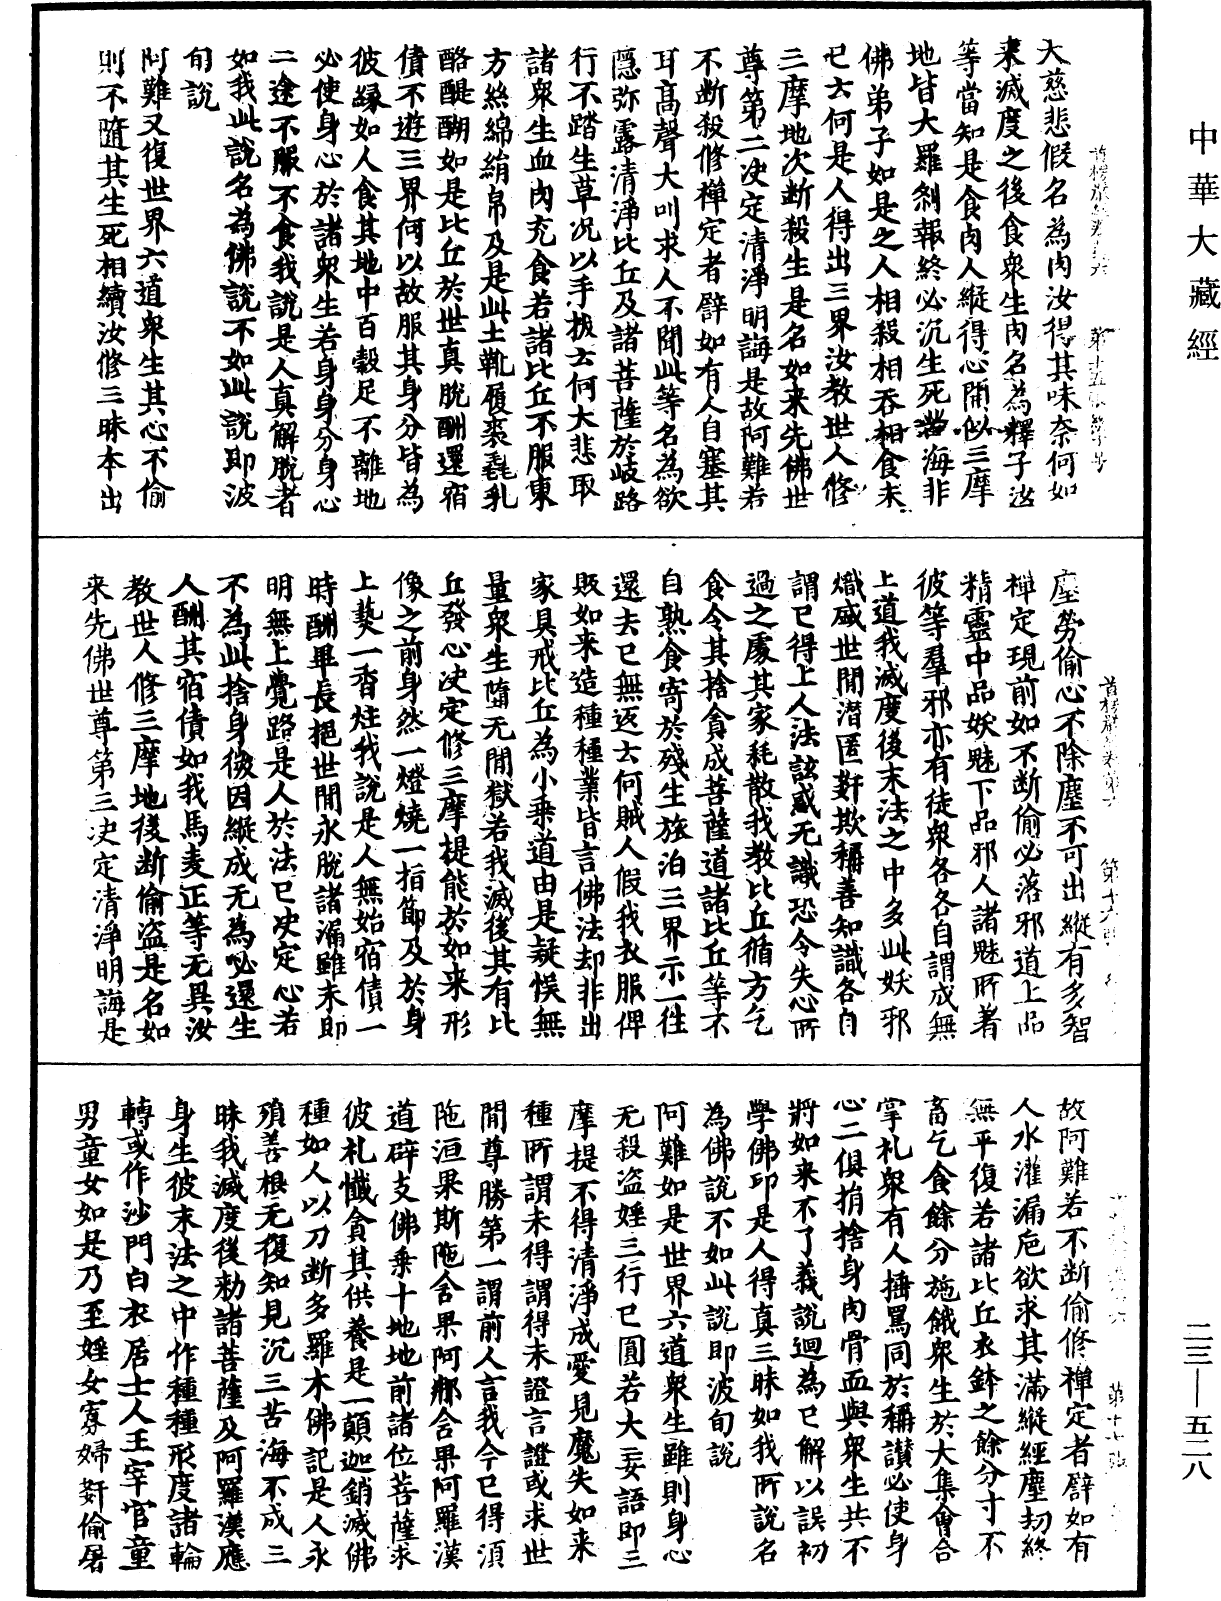 中華大藏經
大慈悲假名為肉汝得其味奈何如
来滅度之後食衆生肉名為釋子汝
等當知是食肉人縱得心開似三摩
地皆大羅刹報終必沉生死苦海非
佛弟子如是之人相殺相吞相食未
已云何是人得出三界汝教世人修
三摩地次断殺生是名如来先佛世
尊第二决定清淨明誨是故阿難若
不断殺修禅定者譬如有人自塞其
耳高聲大叫求人不聞此等名為欲
隱弥露清淨比丘及諸菩薩於岐路
行不踏生草况以手拔云何大悲取
諸衆生血肉充食若諸比丘不服東
方絲綿絹帛及是此土靴履裘毳乳
酪醍醐如是比丘於世真脱酬還宿
債不遊三界何以故服其身分皆為
彼縁如人食其地中百穀足不離地
必使身心於諸衆生若身身分身心
二途不服不食我說是人真解脱者
如我此說名為佛說不如此說即波
旬說
阿難又復世界六道衆生其心不偷
則不隨其生死相續汝修三昧本出
塵勞偷心不除塵不可出縱有多智
禅定現前如不断偷必落邪道上品
精靈中品妖魅下品邪人諸魅所著
彼等羣邪亦有徒衆各各自謂成無
上道我滅度後末法之中多此妖邪
熾盛世間潜匿姧欺稱善知識各自
謂已得上人法詃惑无識恐令失心所
過之處其家耗散我教比丘循方乞
食令其捨貪成菩薩道諸比丘等不
自熟食寄於殘生旅泊三界示一往
還去已無返云何賊人假我衣服裨
販如来造種種業皆言佛法却非出
家具戒比丘為小乗道由是疑悮無
量衆生墮无間獄若我滅後其有比
丘發心决定修三摩提能於如来形
像之前身然一燈燒一指節及於身
上爇一香炷我說是人無始宿債一
時酬畢長挹世間永脱諸漏雖未即
明無上覺路是人於法已决定心若
不為此捨身微因縱成无為必還生
人酬其宿債如我馬麦正等无異汝
教世人修三摩地後断偷盗是名如
来先佛世尊第三决定清淨明誨是
故阿難若不断偷修禅定者譬如有
人水灌漏巵欲求其滿縱經塵劫終
無平復若諸比丘衣鉢之餘分寸不
畜乞食餘分施餓衆生於大集會合
掌礼衆有人捶罵同於稱讃必使身
心二俱捐捨身肉骨血與衆生共不
將如来不了義說迴為已解以誤初
學佛印是人得真三昧如我所說名
為佛說不如此說即波旬說
阿難如是世界六道衆生雖則身心
无殺盗婬三行已圓若大妄語即三
摩提不得清淨成愛見魔失如来
種所謂未得謂得未證言證或求世
間尊勝第一謂前人言我今已得湏
陁洹果斯陁含果阿那含果阿羅漢
道辟支佛乗十地地前諸位菩薩求
彼礼懺貪其供養是一顛迦銷滅佛
種如人以刀断多羅木佛記是人永
殞善根无復知見沉三苦海不成三
昧我滅度後勑諸菩薩及阿羅漢應
身生彼末法之中作種種形度諸輪
轉或作沙門白衣居士人王宰官童
男童女如是乃至婬女寡婦姧偷屠
二三—五二八